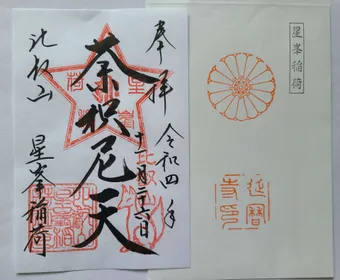 奉拝
令和四年
十一月二六日
荼枳尼天
比叡山
星峯稲荷
星峯稲荷
延暦
寺印